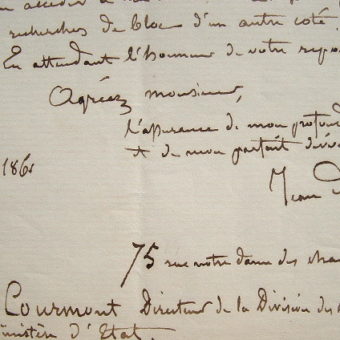 accéder à
recherches de bloc d'un autre coté.
En attendant l'honneur de votre repo
Agréez monsieur,
l'assurance de mon profond
& de mon parfait dévou
186
Jean D
75 rue notre dame des cha
Courmont Directeur de la Division des
ministère d'Etat.